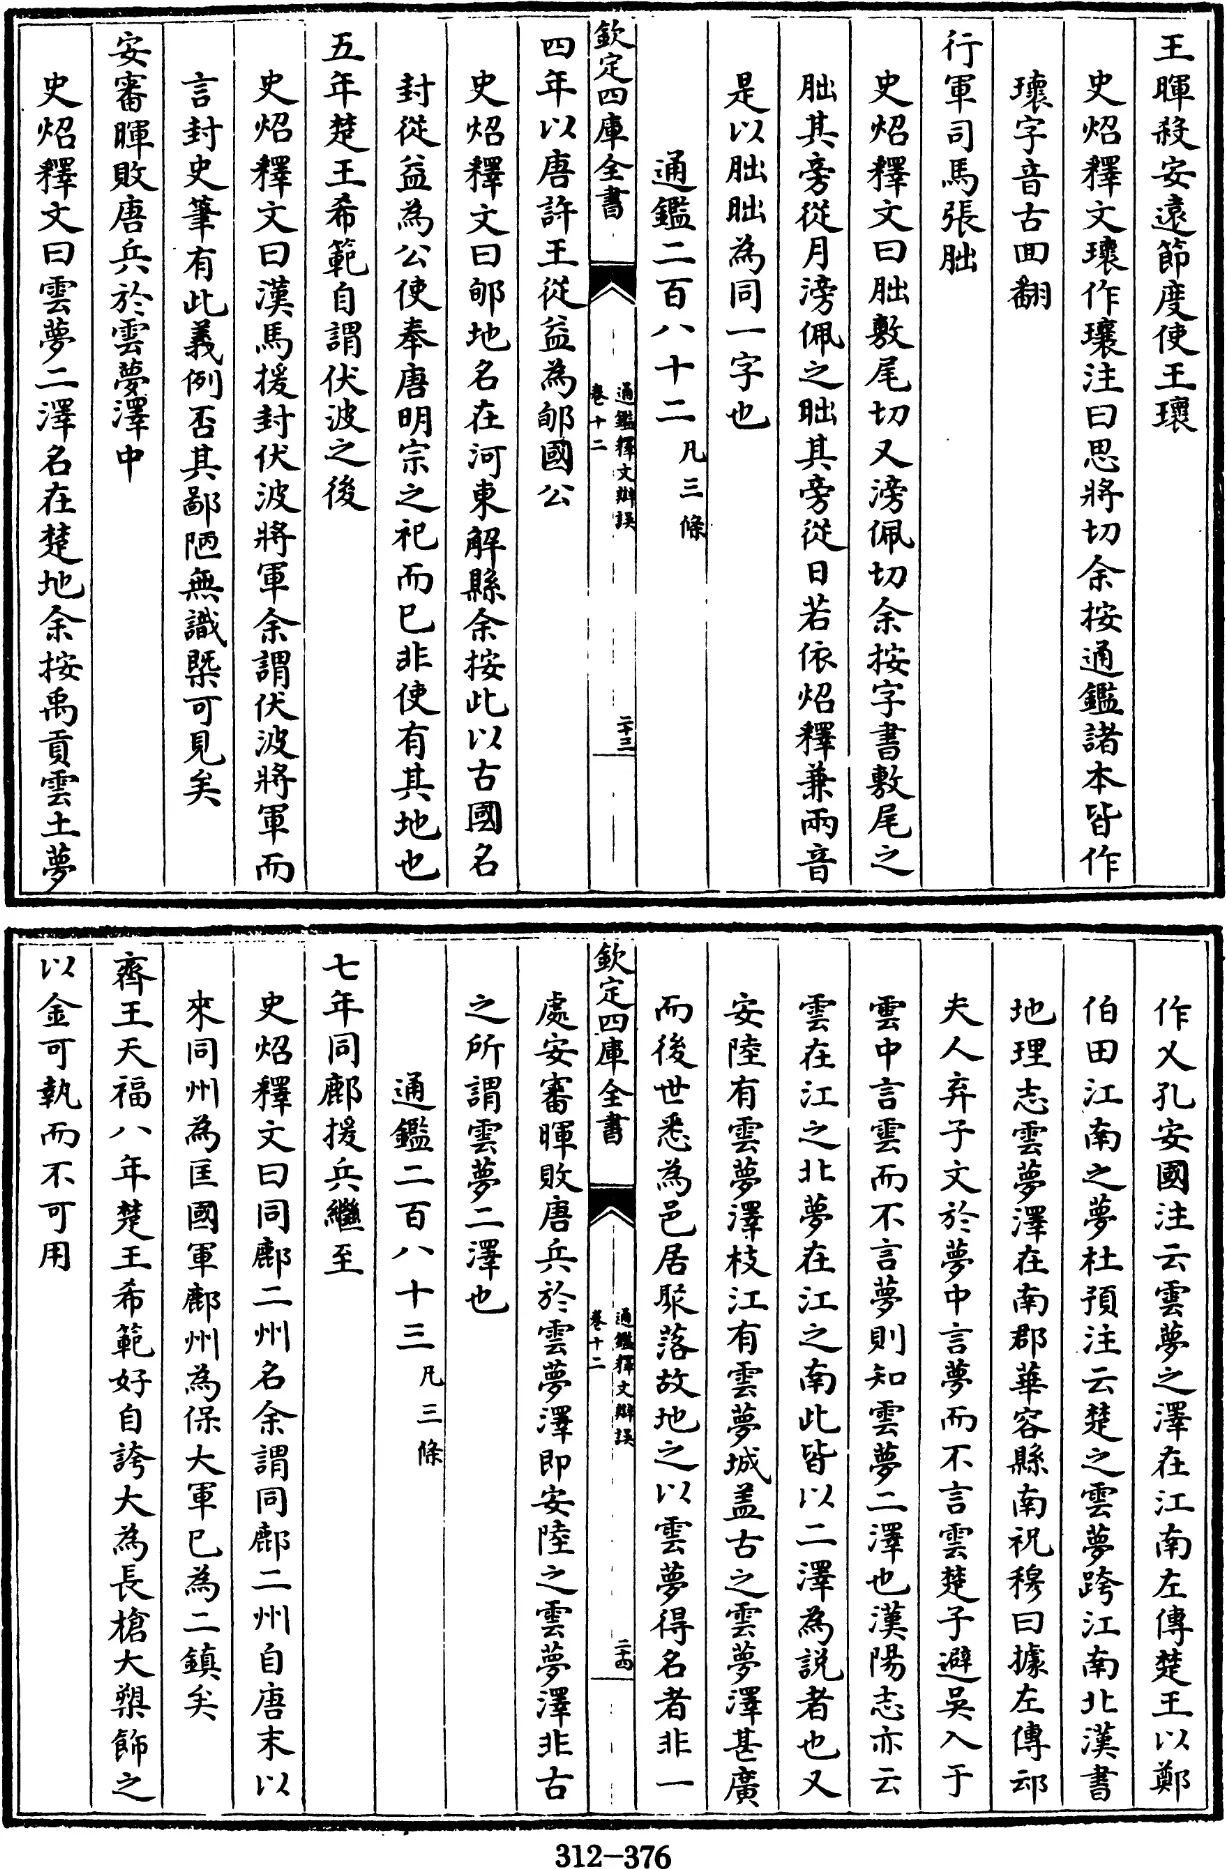 王暉殺安遠節度使王瓌
史炤釋文瓌作瓖注曰思將切余按通鑑諸本皆作
瓌字音古回翻
行軍司馬張朏
史炤釋文曰朏敷尾切又滂佩切余按字書敷尾之
朏其旁從月滂佩之昢其旁從日若依炤釋兼兩音
是以朏昢為同一字也
通鑑二百八十二凡三條
欽定四庫全書
通鑑釋文辯誤
卷十二
二十三
四年以唐許王從益為郇國公
史炤釋文曰郇地名在河東解縣余按此以古國名
封從益為公使奉唐明宗之祀而已非使有其地也
五年楚王希範自謂伏波之後
史炤釋文曰漢馬援封伏波將軍余謂伏波將軍而
言封史筆有此義例否其鄙陋無識槩可見矣
安審暉敗唐兵於雲夢澤中
史炤釋文曰雲夢二澤名在楚地余按禹貢雲土夢
作乂孔安國注云雲夢之澤在江南左傳楚王以鄭
伯田江南之夢杜預注云楚之雲夢跨江南北漢書
地理志雲夢澤在南郡華容縣南祝穆曰據左傳䢵
夫人弃子文於夢中言夢而不言雲楚子避吳入于
雲中言雲而不言夢則知雲夢二澤也漢陽志亦云
雲在江之北夢在江之南此皆以二澤為説者也又
安陸有雲夢澤枝江有雲夢城盖古之雲夢澤甚廣
而後世悉為邑居聚落故地之以雲夢得名者非一
欽定四庫全書
通鑑釋文辯誤
卷十二
二十四
處安審暉敗唐兵於雲夢澤即安陸之雲夢澤非古
之所謂雲夢二澤也
通鑑二百八十三凡三條
七年同鄜援兵繼至
史炤釋文曰同鄜二州名余謂同鄜二州自唐末以
來同州為匡國軍鄜州為保大軍已為二鎮矣
齊王天福八年楚王希範好自誇大為長槍大槊飾之
以金可執而不可用
312-376